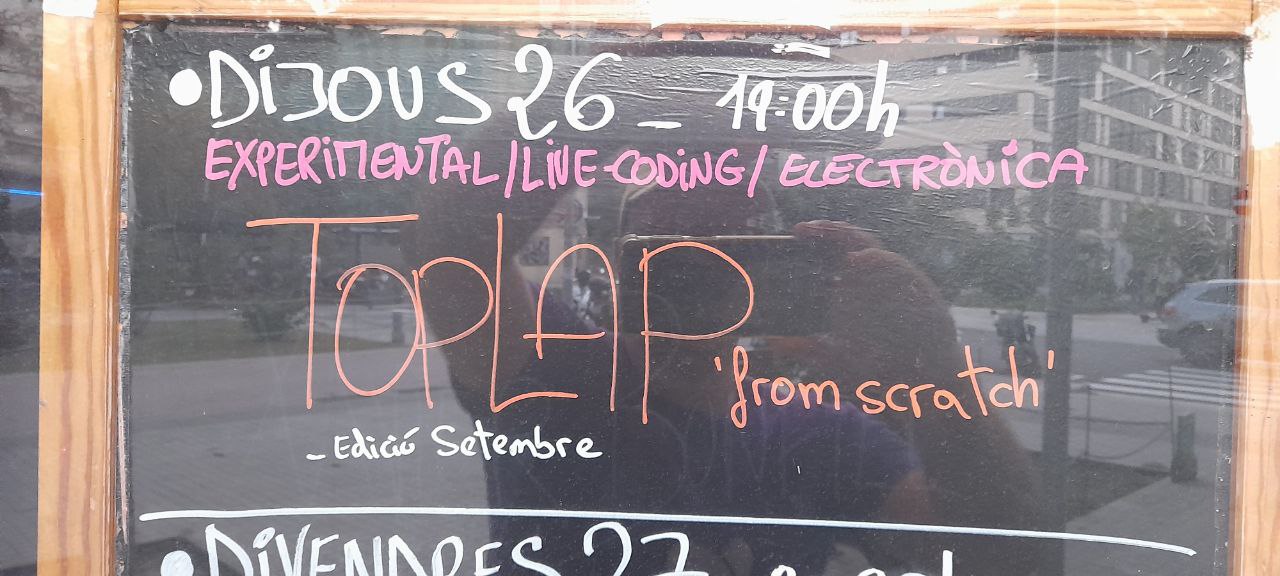 •DiJOUS 26 - 19:00h
EXPERiMENTAL/LiVE-CODiNG/ELECTRÒNiCA
TOPLAP
'from scratch'
- Edició Setembre
•DiVENDRES 27